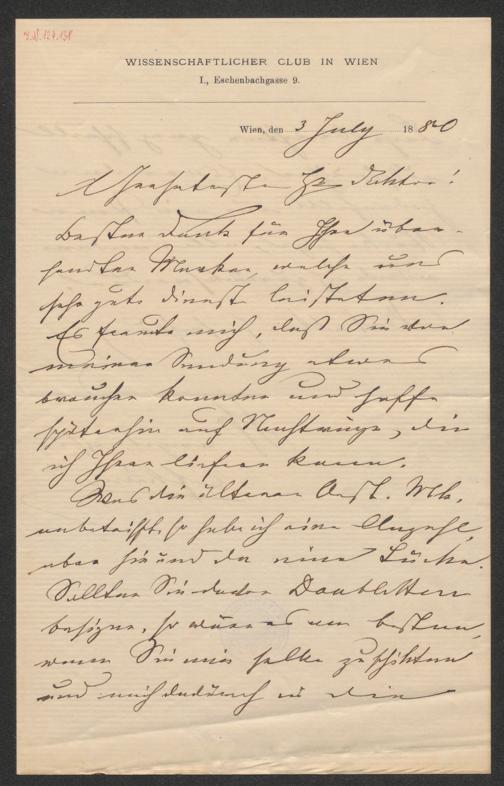 I.N. 124.138
WISSENSCHAFTLICHER CLUB IN WIEN
I., Eschenbachgasse 9.
Wien, den 3 July 1880
Geehrtester Hr Doktor!
Besten Dank für Ihre über-
sandten Marken, welche uns
sehr gute Dienste leisteten.
Es freute mich, daß Sie von
meiner Sendung etwas
brauchen konnten und hoffe
späterhin auf Nachträge, die
ich Ihnen liefern kann.
Was die älteren Oest. Mk.
anbetrifft, so habe ich eine Anzahl,
aber hie und da eine Lücke.
Sollten Sie davon Doubletten
besizen, so wäre es am besten,
wenn Sie mir selbe zuschikten
und mich dadurch in die